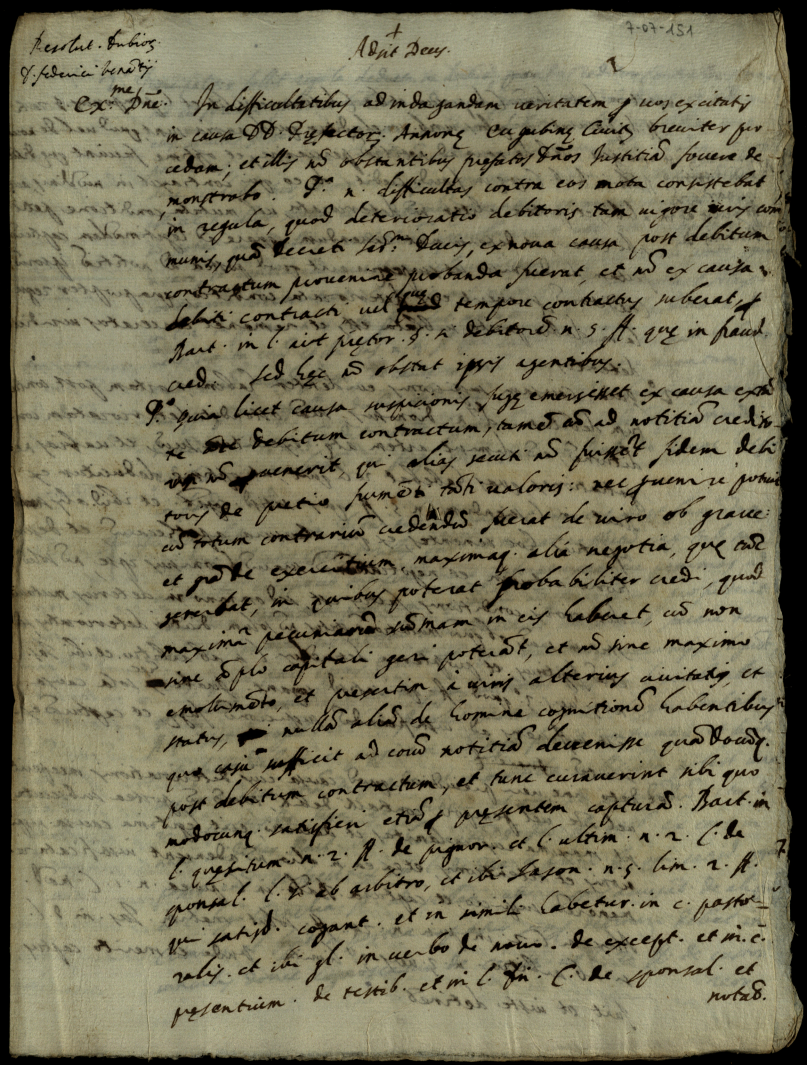 7-07-151
+
Adsit Deus.
Resolut. dubior.
D. federici
1
Ex.me Dne. In difficultatibus ad indagandam veritatem p vos excitatis
in causa DD. Annonę Eugubinę Civit. breviter pro
cedam; et illis nō obstantibus prefatos Dnos Justitiā fovere de
monstrabo. P.a n. difficultas contra eos mota consistebat
in regula, quod deterioratio debitoris tam vigore iuris com
munis, quā decreti Ser.mi Ducis, ex nova causa post debitum
contractum proveniens probanda fuerat, et nō ex causa
debiti contracti vel que tempore contractus suberat, p
Bart. in l. ait prętor. §. si debitorē n. 5. ff. quę in fraud.
cred. sed hęc nō obstat ipsis agentibus.
P.o quia licet causa suspicionis fugę emersisset ex causa
te debitum contractum, tamē ad notitiā credito
nō pvenerit qui alias secuti nō fuissēt fidem debi
toris de pretio frumēti tāti valoris: nec pvenire potuit
cū totum contrariū credendū fuerat de viro ob grave
et maximaq. alia negotia, quę
in quibus poterat probabiliter credi, quod
maximā pecuniarū sūmam in eis haberet, cū non
sine āplo capitali geri poterāt, et nō sine maximo
emolumēto, et presertim a viris alterius civitatis et
status, nullā aliā de homine cognitionē habentibus
quo casu sufficit ad eorū notitiā devenisse quādocūq.
post debitum contractum, et tunc curaverint sibi quo
modocunq. satisfieri etiā p pręsentem capturā. Bart. in
l. quęsitum n. 2. ff. de pignor. et l. ultim. n. 2. C. de
sponsal. l. si ab arbitro, et ibi Jason. n. 5. lim. 2. ff.
qui satisd. cogant. et in simili habetur in c. pasto-
ralis. et ibi gl. in verbo de novo. de except. et in c.
pręsentium. de testib. et in l. fin. C. de sponsal. et
notat.